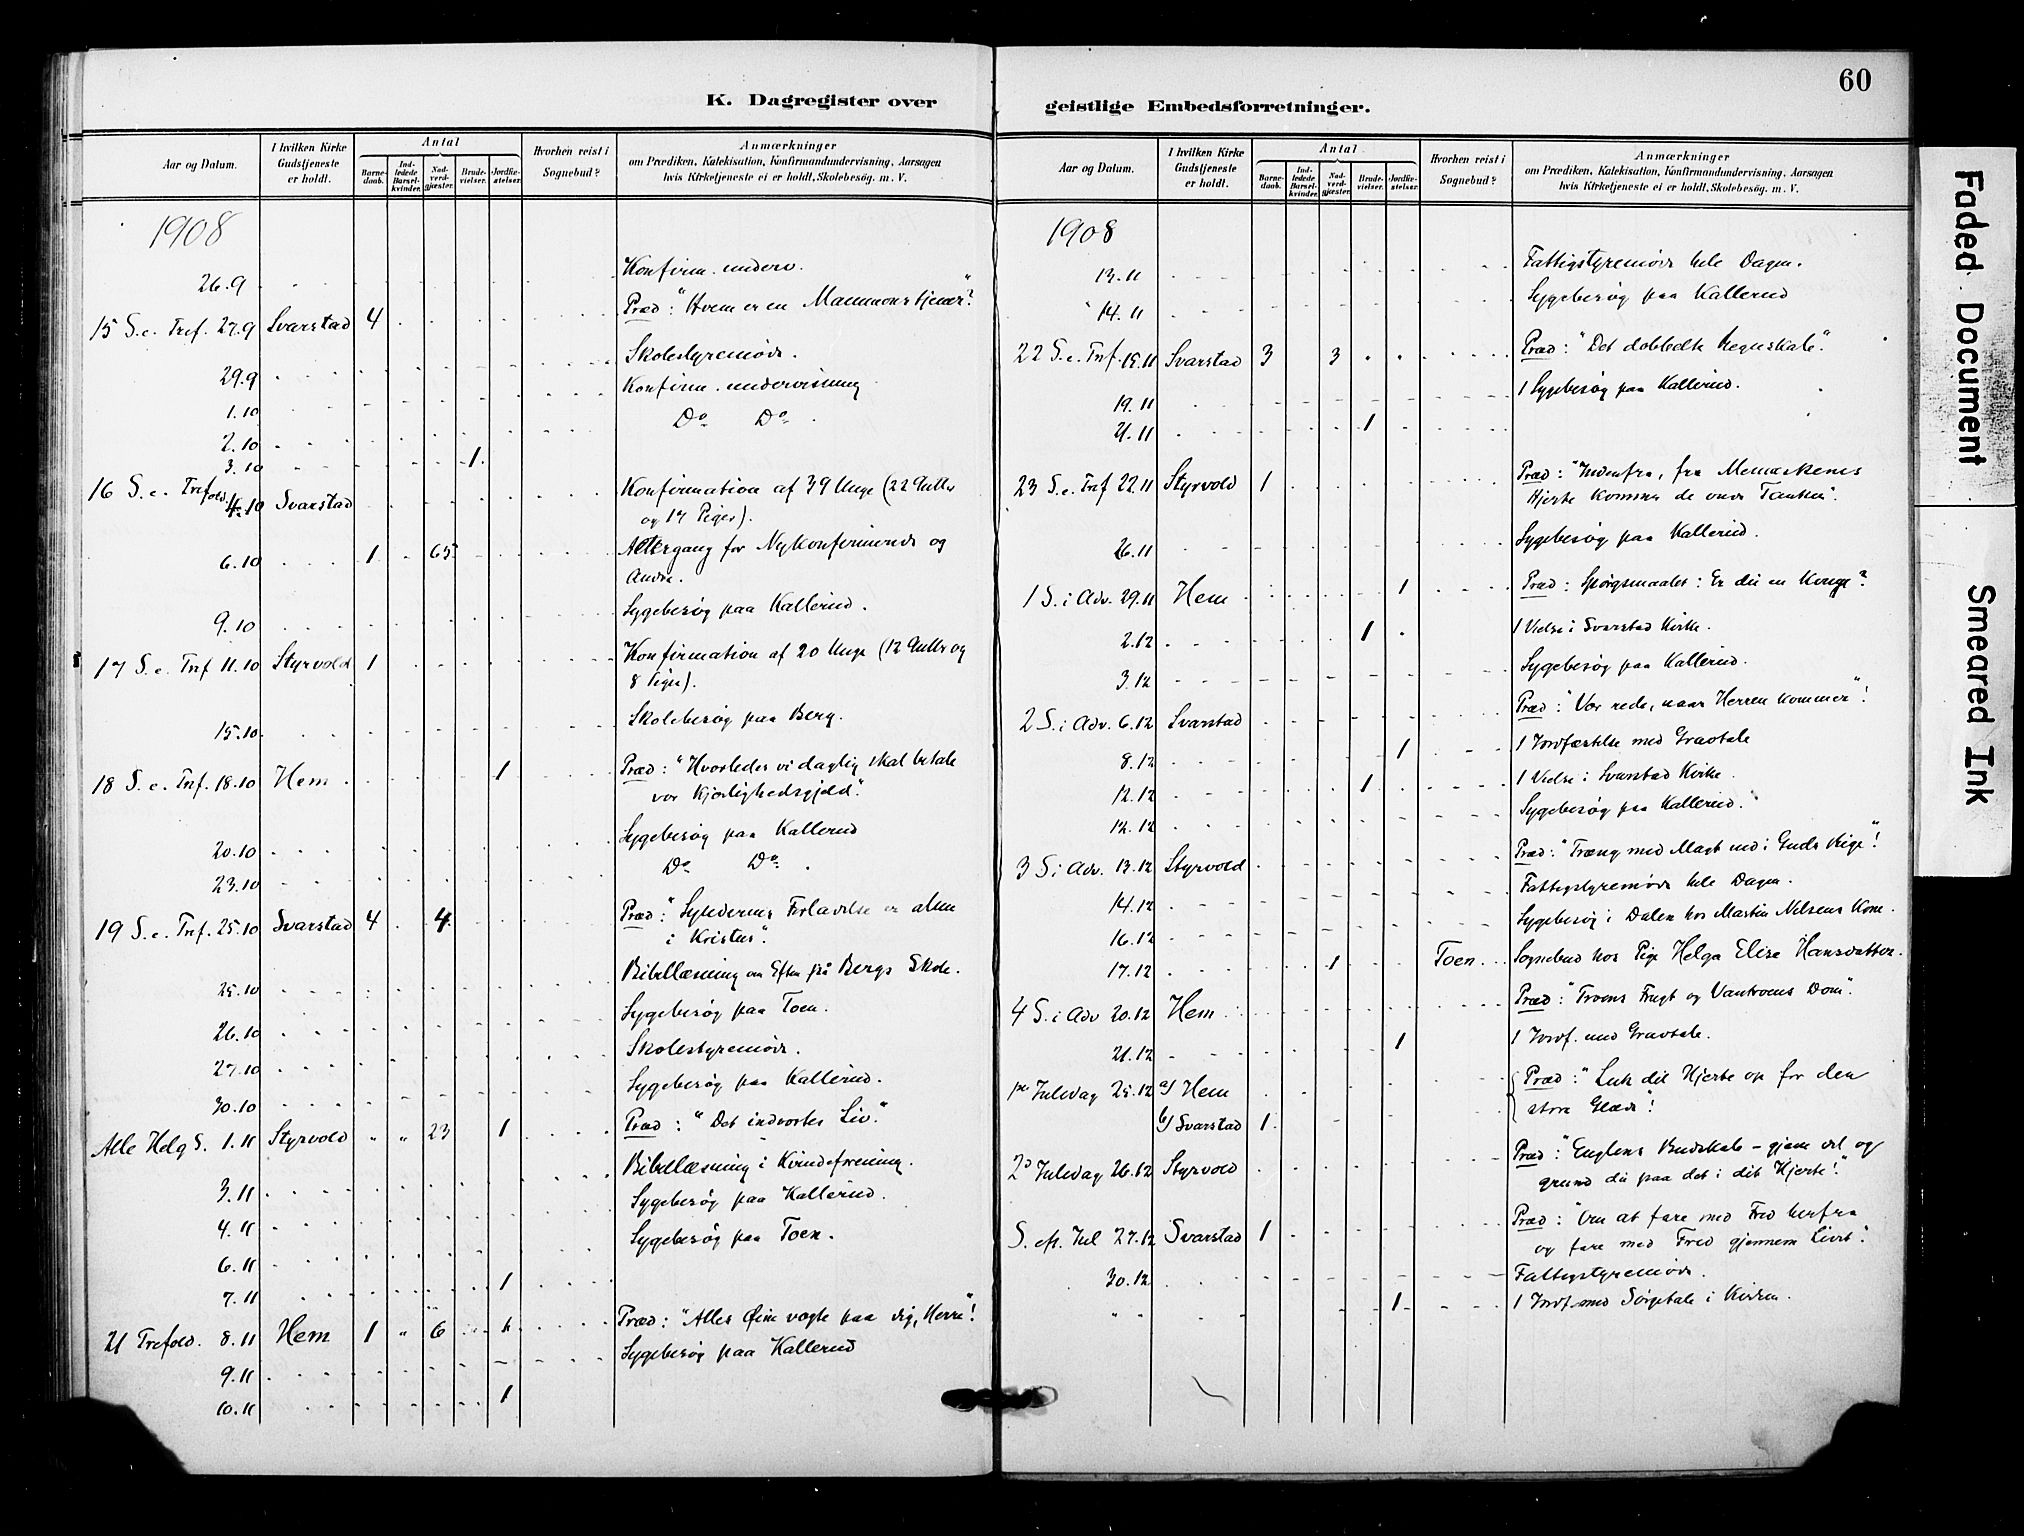 60
K. Dagregister over
Aar og Datum.
I hvilken Kirke Gudstjeneste er holdt.
Antal
Barne-daab.
Ind-ledede Barsel-kvinder.
Nad-verd-gjæster.
Brude-vielser.
Jordfæ-stelser.
Hvorhen reist i Sognebud?
Anmærkninger
om Prædiken, Katekisation, Konfirmandundervisning, Aarsagen
hvis Kirketjeneste ei er holdt, Skolebesøg. m. V.
1908
26.9 Konfirm. underv.
15 S. e. Tref. 27.9 Svarstad 4 Præd: "Hvem er en Mammonstjener?"
29.9 Skolestyremøde.
1.10 Konfirm. undervisning
2.10 Do Do
3.10 1
16 S. e. Trefold. 4.10 Svarstad Konfirmation af 39 Unge (22 Gutter
og 17 Piger).
6.10 1 65 Altergang for Nykonfirmerede og
Andre.
9.10 Sygebesøg paa Kallerud.
17 S. e. Tref 11.10 Styrvold 1 Konfirmation af 20 Unge (12 Gutter og
8 Piger).
15.10 Skolebesøg paa Berg.
18 S. e. Tref. 18.10 Hem 1 Præd: "Hvorledes vi daglig skal betale
vor Kjærlighedsgjæld."
20.10 Sygebesøg paa Kallerud
23.10 Do Do
19 S. e. Tref. 25.10 Svarstad 4 4 Præd: "Syndernes Forladelse er alene
i Kristus."
25.10 Bibellæsning om Eften på Bergs Skole.
26.10 Sygebesøg paa Toen.
27.10 Skolestyremøde.
30.10 Sygebesøg paa Kallerud.
Alle Helg S. 1.11 Styrvold " " 23 1 Præd: "Det indvortes Liv."
3.11 Bibellæsning i Kvindeforening.
4.11 Sygebesøg paa Kallerud.
6.11 Sygebesøg paa Toen.
7.11 1
21 Trefold. 8.11 Hem 1 " 6 Præd: "Alles Øine vogte paa dig, Herre"!
9.11 Sygebesøg paa Kallerud
10.11 1
geistlige Embedsforretninger.
Aar og Datum.
I hvilken Kirke Gudstjeneste er holdt.
Antal
Barne-daab.
Ind-ledede Barsel-kvinder.
Nad-verd-gjæster.
Brude-vielser.
Jordfæ-stelser.
Hvorhen reist i Sognebud?
Anmærkninger
om Prædiken, Katekisation, Konfirmandundervisning, Aarsagen
hvis Kirketjeneste ei er holdt, Skolebesøg. m. V.
1908
13.11 Fattigstyremøde hele Dagen.
14.11 Sygebesøg paa Kallerud
22 S. e. Tref. 15.11 Svarstad 3 3 Præd: "Det dobbelte Regnskab".
19.11 1 Sygebesøg paa Kallerud.
21.11 1
23 S. e. Tref 22.11 Styrvold 1 Præd: "Indenfra, fra Menneskenes
Hjerte kommer de onde Tanker".
26.11 Sygebesøg paa Kallerud.
1 S. i Adv. 29.11 Hem 1 Præd: Spørgsmaalet: Er du en Konge?
2.12 1 1 Vielse i Svarstad Kirke.
3.12 Sygebesøg paa Kallerud.
2 S. i Adv. 6.12 Svarstad Præd: "Vær rede, naar Herren kommer"!
8.12 1 1 Jordfæstelse med Gravtale
12.12 1 1 Vielse i Svarstad Kirke.
12.12 Sygebesøg paa Kallerud.
3 S. i Adv. 13.12 Styrvold Præd: "Træng med Magt ind i Guds Rige"!
14.12 Fattigstyremøde hele Dagen.
16.12 Sygebesøg i Dalen hos Martin Nilsens Kone.
17.12 1 Toen Sognebud hos Pige Helga Elise Hansdatter.
4 S. i Adv 20.12 Hem Præd: "Troens Frugt og Vantroens Dom".
21.12 1 1 Jordf. med Gravtale.
1ste Juledag 25.12 a/ Hem Præd: "Luk dit Hjerte op for den
store Glæde"!
b/ Svarstad 1
2d Juledag 26.12 Styrvold Præd: "Englens Budskab - gjem det og
grund du paa det i dit Hjerte"!
S. eft. Jul 27.12 Svarstad 1 Præd: "Om at fare med Fred herfra
og fare med Fred gjennem Livet".
30.12 Fattigstyremøde.
" " 1 1 Jordf. med Sørgetale i Kirken.
Faded Document
Smeared Ink